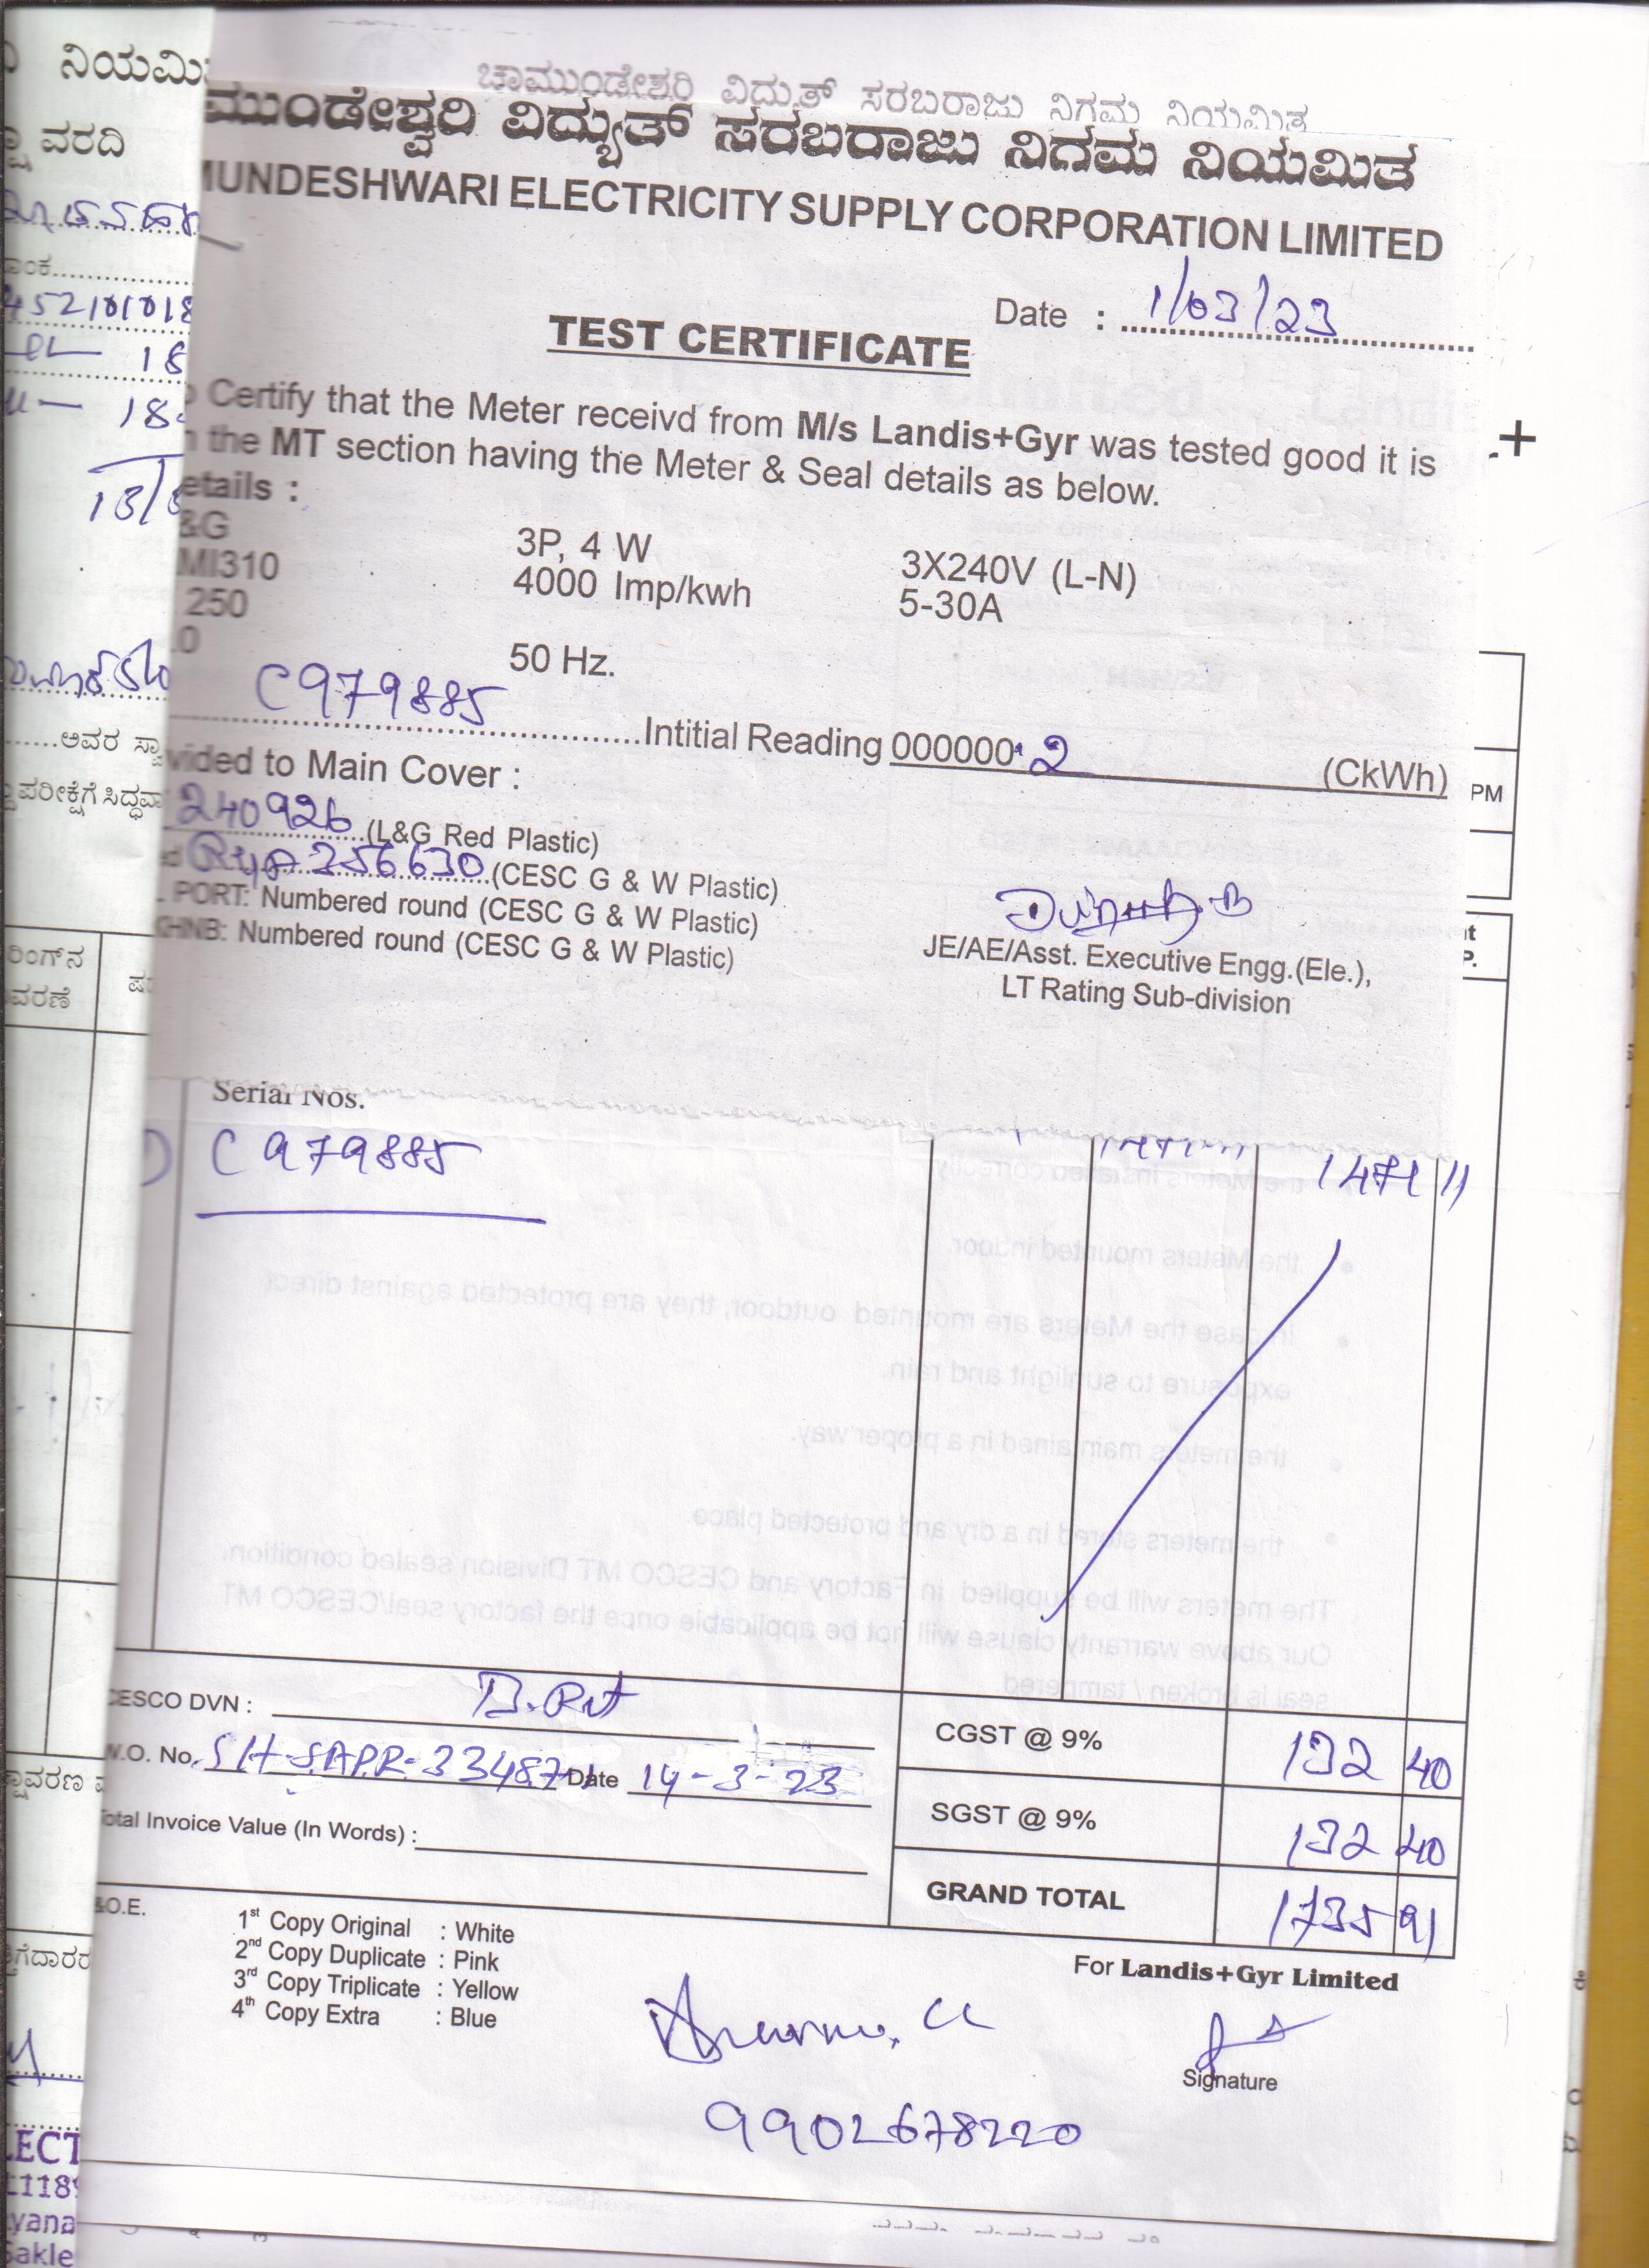 ನಿಯಮಿ
ವರದಿ
452101018
18
18
13/
ಅವರ ಸ್ವಾ
ಪರೀಕ್ಷೆಗೆ ಸಿದ್ಧವಾ
ರಿಂಗ್‌ನ
ವರಣೆ
LECT
1118
yana
Sakle
ಚಾಮುಂಡೇಶ್ವರಿ ವಿದ್ಯುತ್ ಸರಬರಾಜು ನಿಗಮ ನಿಯಮಿತ
ಮುಂಡೇಶ್ವರಿ ವಿದ್ಯುತ್ ಸರಬರಾಜು ನಿಗಮ ನಿಯಮಿತ
MUNDESHWARI ELECTRICITY SUPPLY CORPORATION LIMITED
Date : 1/03/23
TEST CERTIFICATE
Certify that the Meter receivd from M/s Landis+Gyr was tested good it is
the MT section having the Meter & Seal details as below.
etails :
&G 3P, 4 W 3X240V (L-N)
MI310 4000 Imp/kwh 5-30A
250
.0 50 Hz.
C979885 Intitial Reading 000000.2 (CkWh)
vided to Main Cover :
240926 (L&G Red Plastic)
256630 (CESC G & W Plastic)
PORT: Numbered round (CESC G & W Plastic)
KHNB: Numbered round (CESC G & W Plastic)
JE/AE/Asst. Executive Engg.(Ele.),
LT Rating Sub-division
PM
Serial Nos.
C979885 1471 11
CESCO DVN :
W.O. No. Date 14-3-23
Total Invoice Value (In Words) :
CGST @ 9% 132 40
SGST @ 9% 132 40
GRAND TOTAL 1735 91
&O.E.
1st Copy Original : White
2nd Copy Duplicate : Pink
3rd Copy Triplicate : Yellow
4th Copy Extra : Blue
For Landis+Gyr Limited
Signature
9902678220